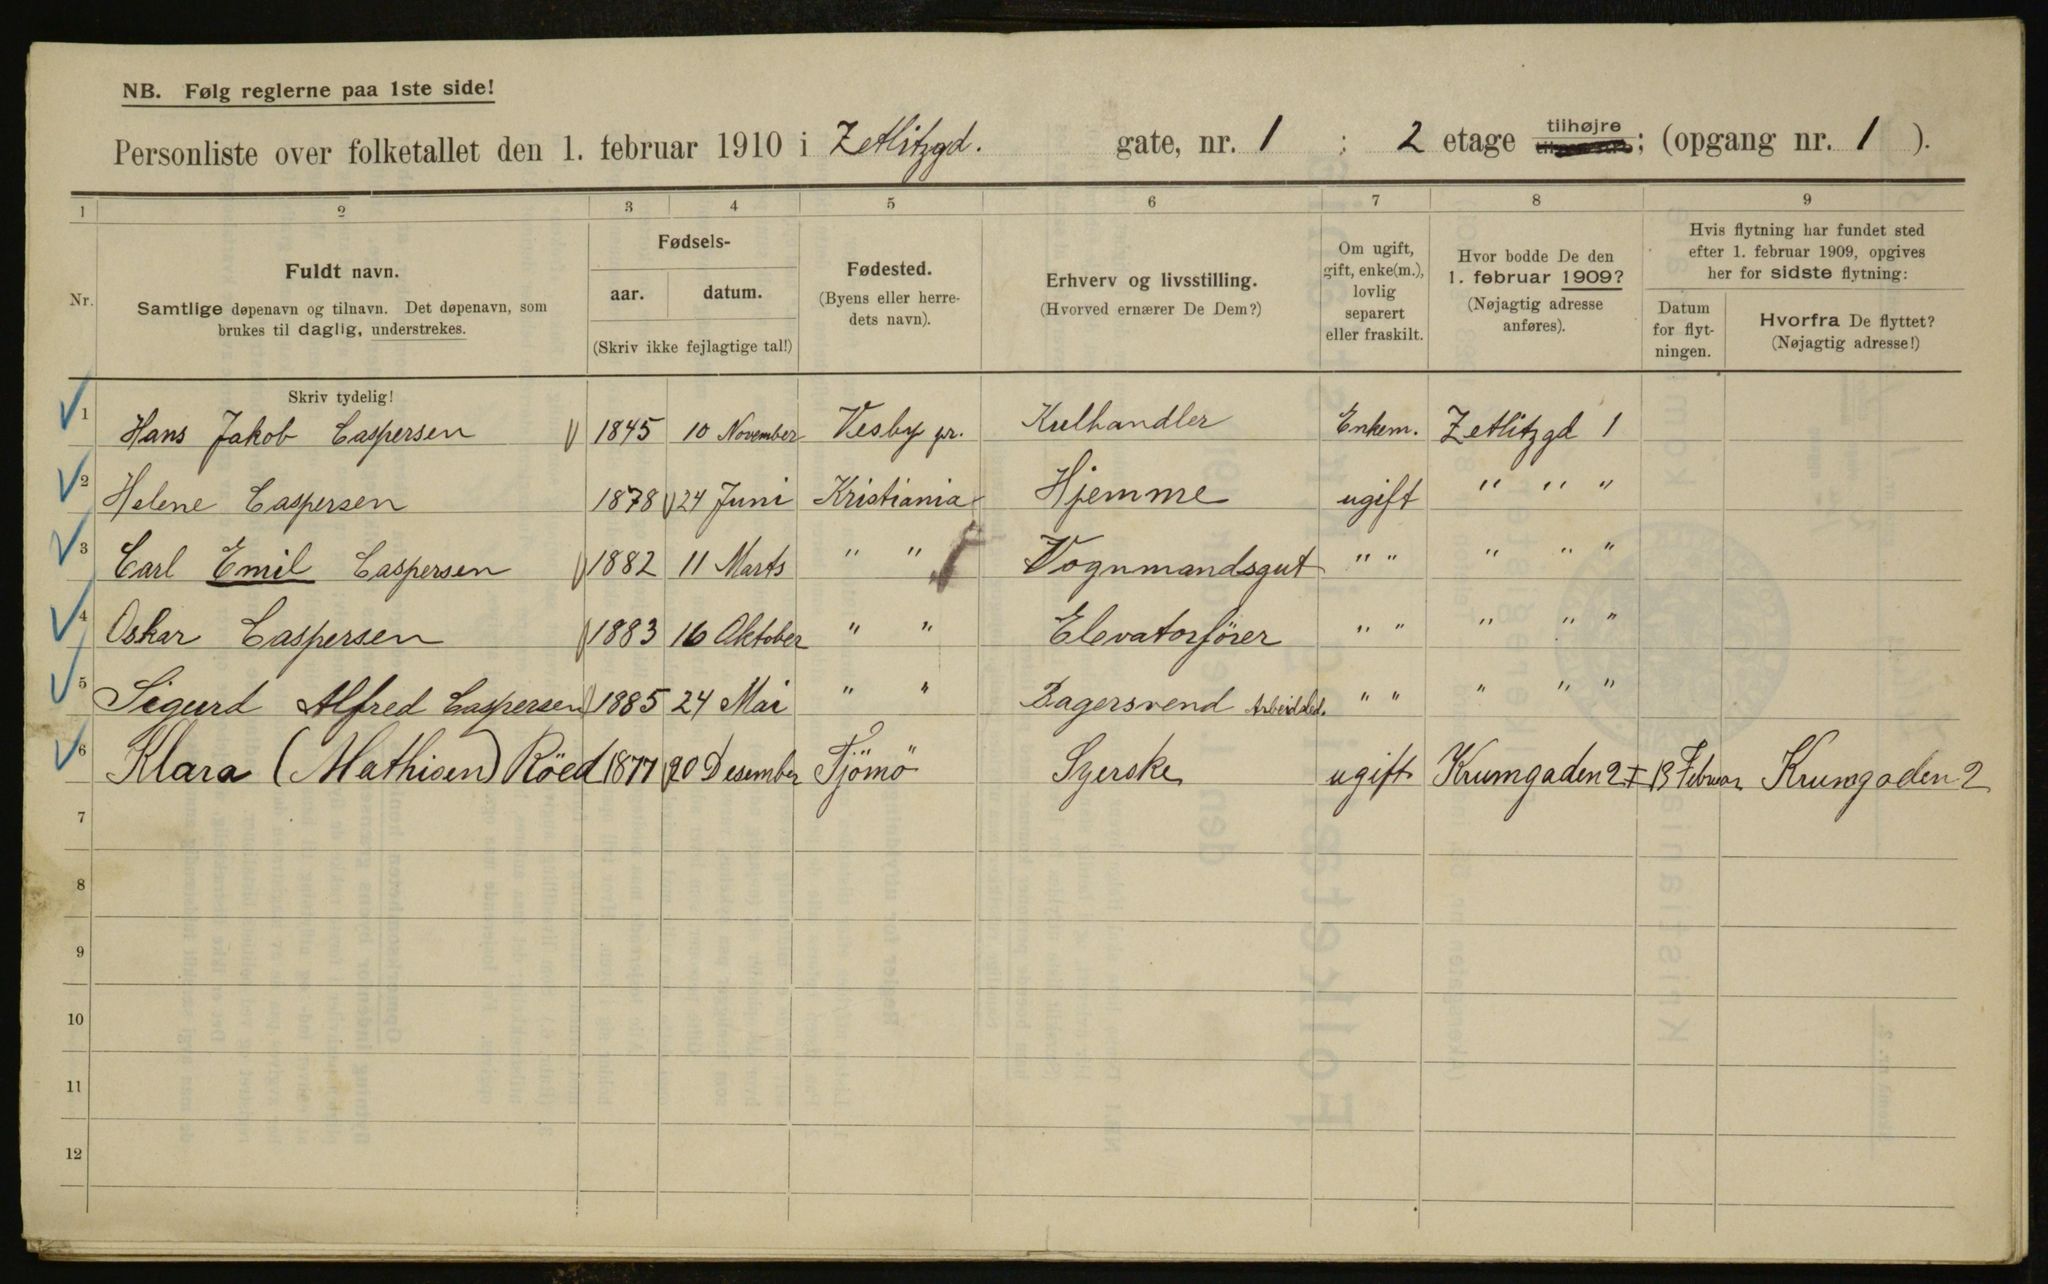 NB. Følg reglerne paa 1ste side!
Personliste over folketallet den 1. februar 1910 i Zetlitzgd. gate, nr. 1 ; 2 etage tilhøjre ; (opgang nr. 1 ).
1 2 3 4 5 6 7 8 9
Nr.
Fuldt navn.
Samtlige døpenavn og tilnavn. Det døpenavn, som
brukes til daglig, understrekes.
Fødsels-
aar. datum.
(Skriv ikke fejlagtige tal!)
Fødested.
(Byens eller herre-
dets navn).
Erhverv og livsstilling.
(Hvorved ernærer De Dem?)
Om ugift,
gift, enke(m.),
lovlig
separert
eller fraskilt.
Hvor bodde De den
1. februar 1909?
(Nøjagtig adresse
anføres).
Hvis flytning har fundet sted
efter 1. februar 1909, opgives
her for sidste flytning:
Datum
for flyt-
ningen.
Hvorfra De flyttet?
(Nøjagtig adresse!)
Skriv tydelig!
1 Hans Jakob Caspersen 1845 10 November Vesby pr. Kulhandler Enkem. Zetlitzgd 1
2 Helene Caspersen 1878 24 Juni Kristiania Hjemme ugift " " "
3 Carl Emil Caspersen 1882 11 Marts " " Vognmandsgut " " " " "
4 Oskar Caspersen 1883 16 Oktober " " Elevatorfører " " " " "
5 Sigurd Alfred Caspersen 1885 24 Mai " " Bagersvend Arbeidsled. " " " " "
6 Klara (Mathisen) Röed 1877 20 Desember Tjömö Syerske ugift Krumgaden 2 Februar Krumgaden 2
7
8
9
10
11
12